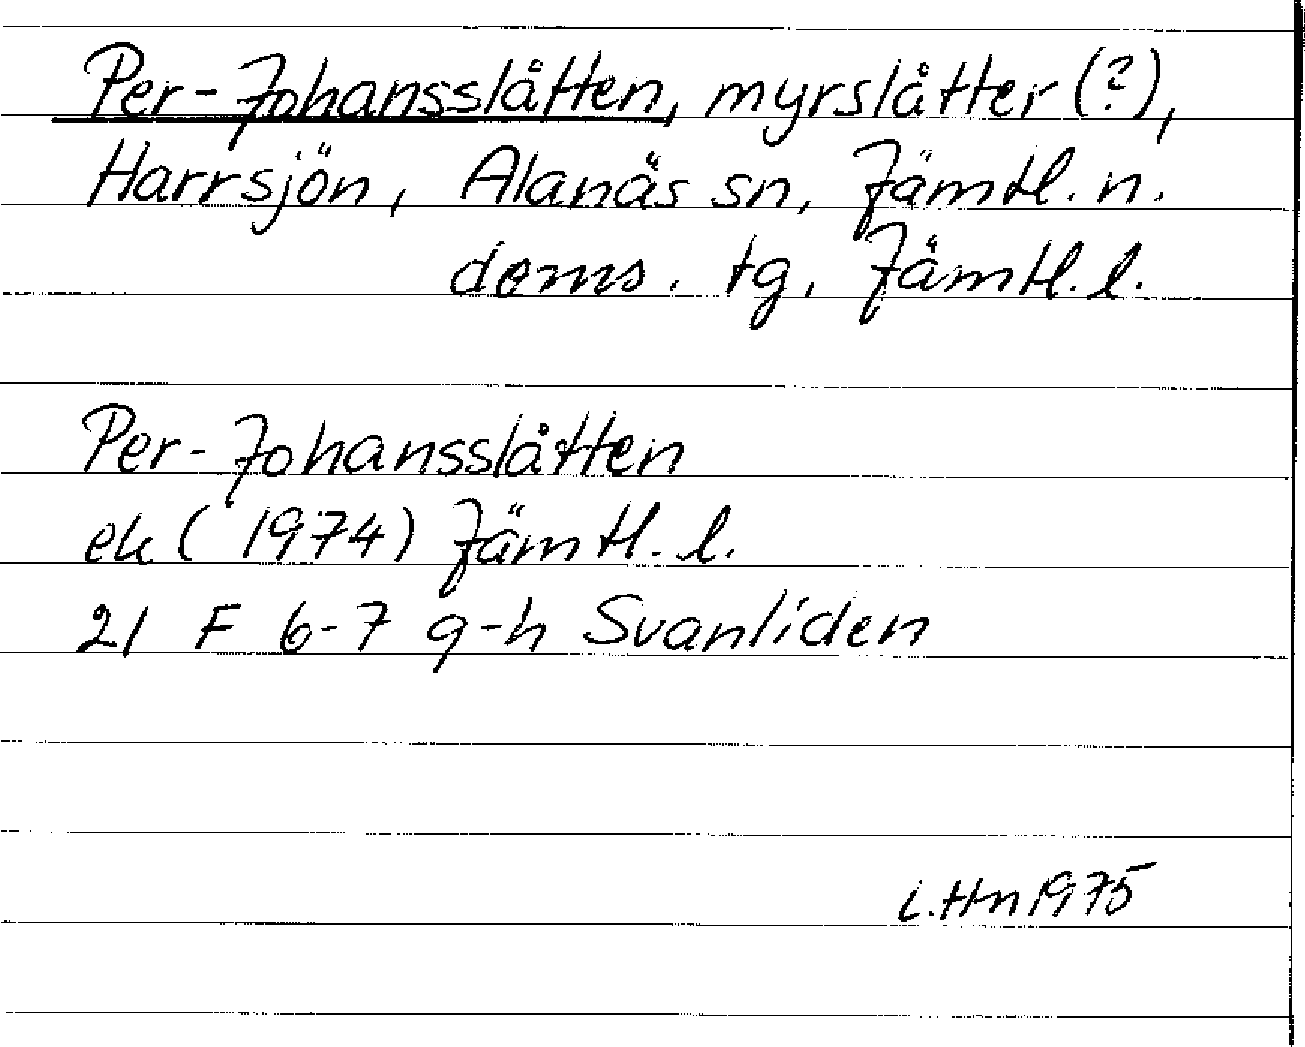 Per-Johansslåtten, myrslåtter (?),
Harrsjön, Alanäs sn, Jämtl. n.
doms. tg, Jämtl. l.
Per-Johansslåtten
ek (1974) Jämtl. l.
21 F 6-7 g-h Svanliden
L.Hn 1975